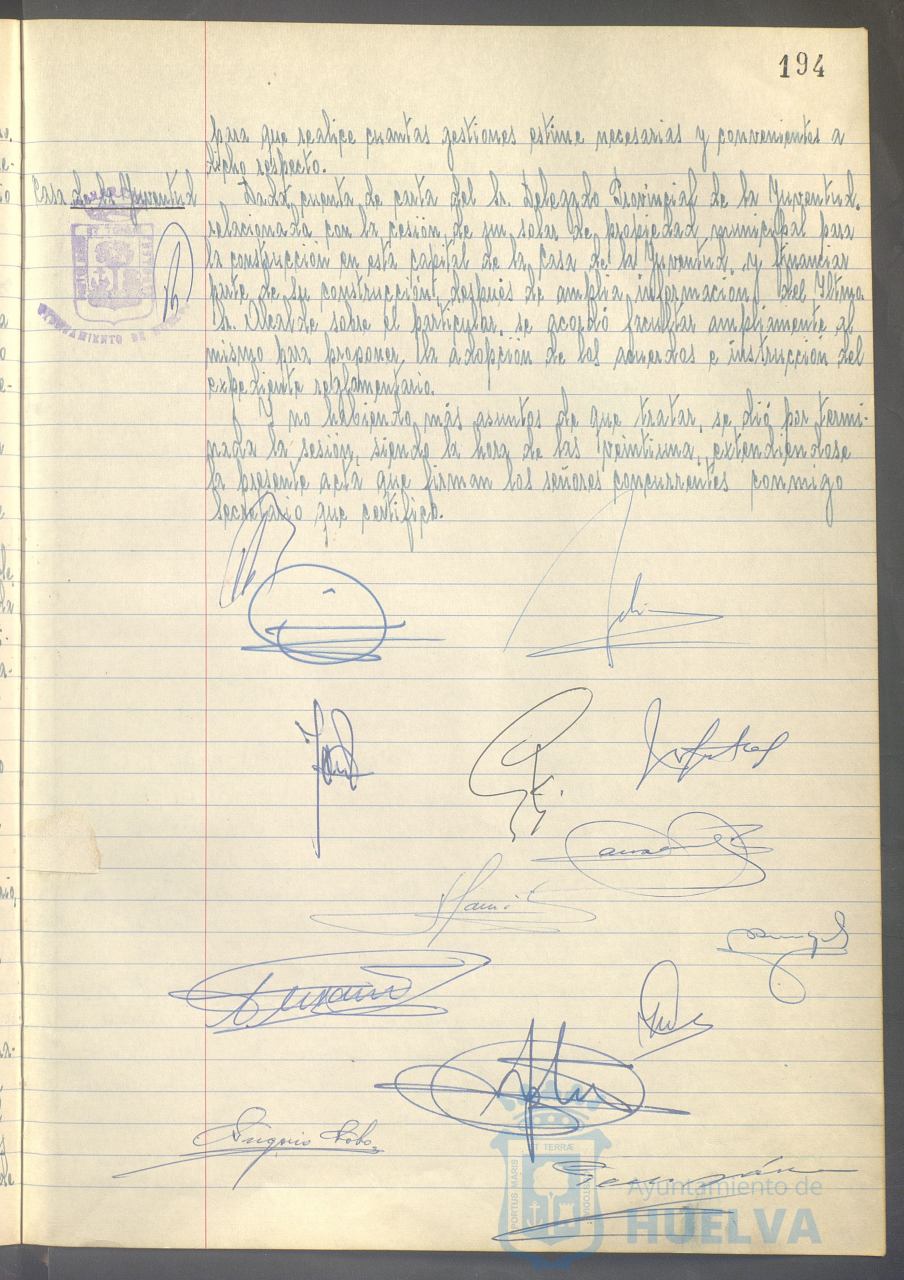 194
para que realice cuantas gestiones estime necesarias y convenientes a
dicho respecto.
Casa de la Juventud
Dada cuenta de carta del Sr. Delegado Provincial de la Juventud,
relacionada con la cesión de un solar de propiedad municipal para
la construcción en esta capital de la Casa de la Juventud, y financiar
parte de su construcción, después de amplia información del Iltmo.
Sr. Alcalde sobre el particular, se acordó facultar ampliamente al
mismo para proponer la adopción de los acuerdos e instrucción del
expediente reglamentario.
Y no habiendo más asuntos de que tratar, se dió por termi-
nada la sesión, siendo la hora de las veintiuna, extendiendose
la presente acta que firman los señores concurrentes conmigo
Secretario que certifico.
AYUNTAMIENTO DE
PORTUS MARIS
ET TERRÆ
CUSTODIA
Ayuntamiento de
HUELVA